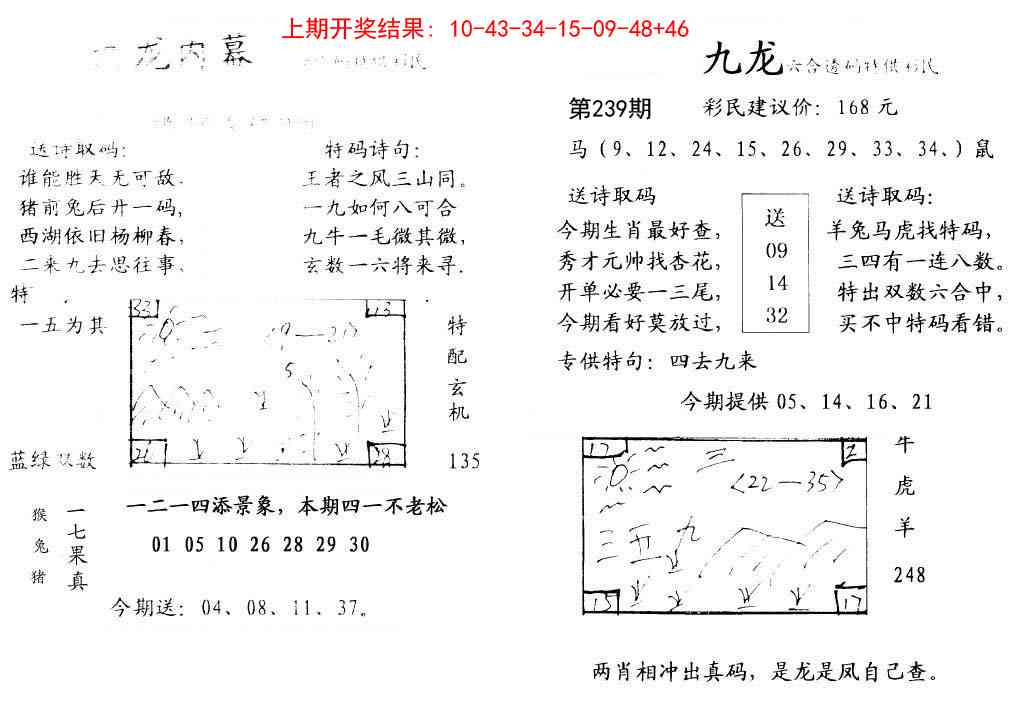 上期开奖结果：10-43-34-15-09-48+46
龙内幕
送诗取码：
谁能胜天无可敌．
猪前兔后廾一码，
西湖依旧杨柳春，
二来九去思往事、
特
一五为其
蓝绿双数
特码诗句：
王者之风三山同。
一九如何八可合
九牛一毛微其微，
玄数一六将来寻．
33
13
28
5
特
配
玄
机
135
一二一四添景象，本期四一不老松
01 05 10 26 28 29 30
猴
兔
猪
一
七
果
真
今期送：04、08、11、37。
九龙六合透码特供彩民
第239期
彩民建议价：168 元
马（9、12、24、15、26、29、33、34、）鼠
送诗取码
今期生肖最好查，
秀才元帅找杏花，
开单必要一三尾，
今期看好莫放过，
送
09
14
32
送诗取码：
羊兔马虎找特码，
三四有一连八数。
特出双数六合中，
买不中特码看错。
专供特句：四去九来
今期提供 05、14、16、21
17
2
三
<22—35>
三五九
15
17
牛
虎
羊
248
两肖相冲出真码，是龙是凤自己查。